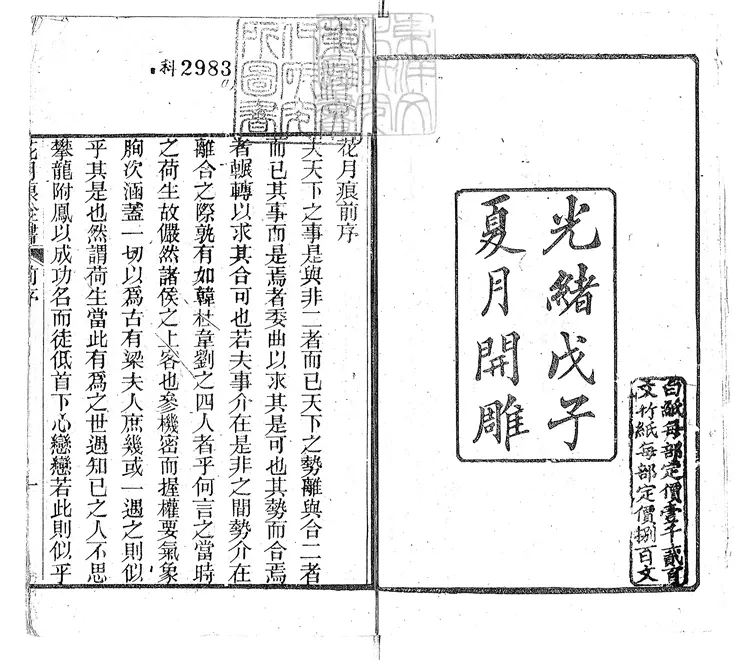 光緒戊子
夏月開雕
白紙每部定價壹千貳百
文竹紙每部定價捌百文
科2983
花月痕前序
夫天下之事是與非二者而已天下之勢離與合二者
而已其事而是焉者委曲以求其是可也其勢而合焉
者輾轉以求其合可也若夫事介在是非之間勢介在
離合之際孰有如韓杜韋劉之四人者乎何言之當時
之荷生故儼然諸侯之上客也參機密而握權要氣象
胸次涵蓋一切以爲古有梁夫人庶幾或一遇之則似
乎其是也然謂荷生當此有爲之世遇知己之人不思
攀龍附鳳以成功名而徒低首下心戀戀若此則似乎
花月痕全書 前序 一